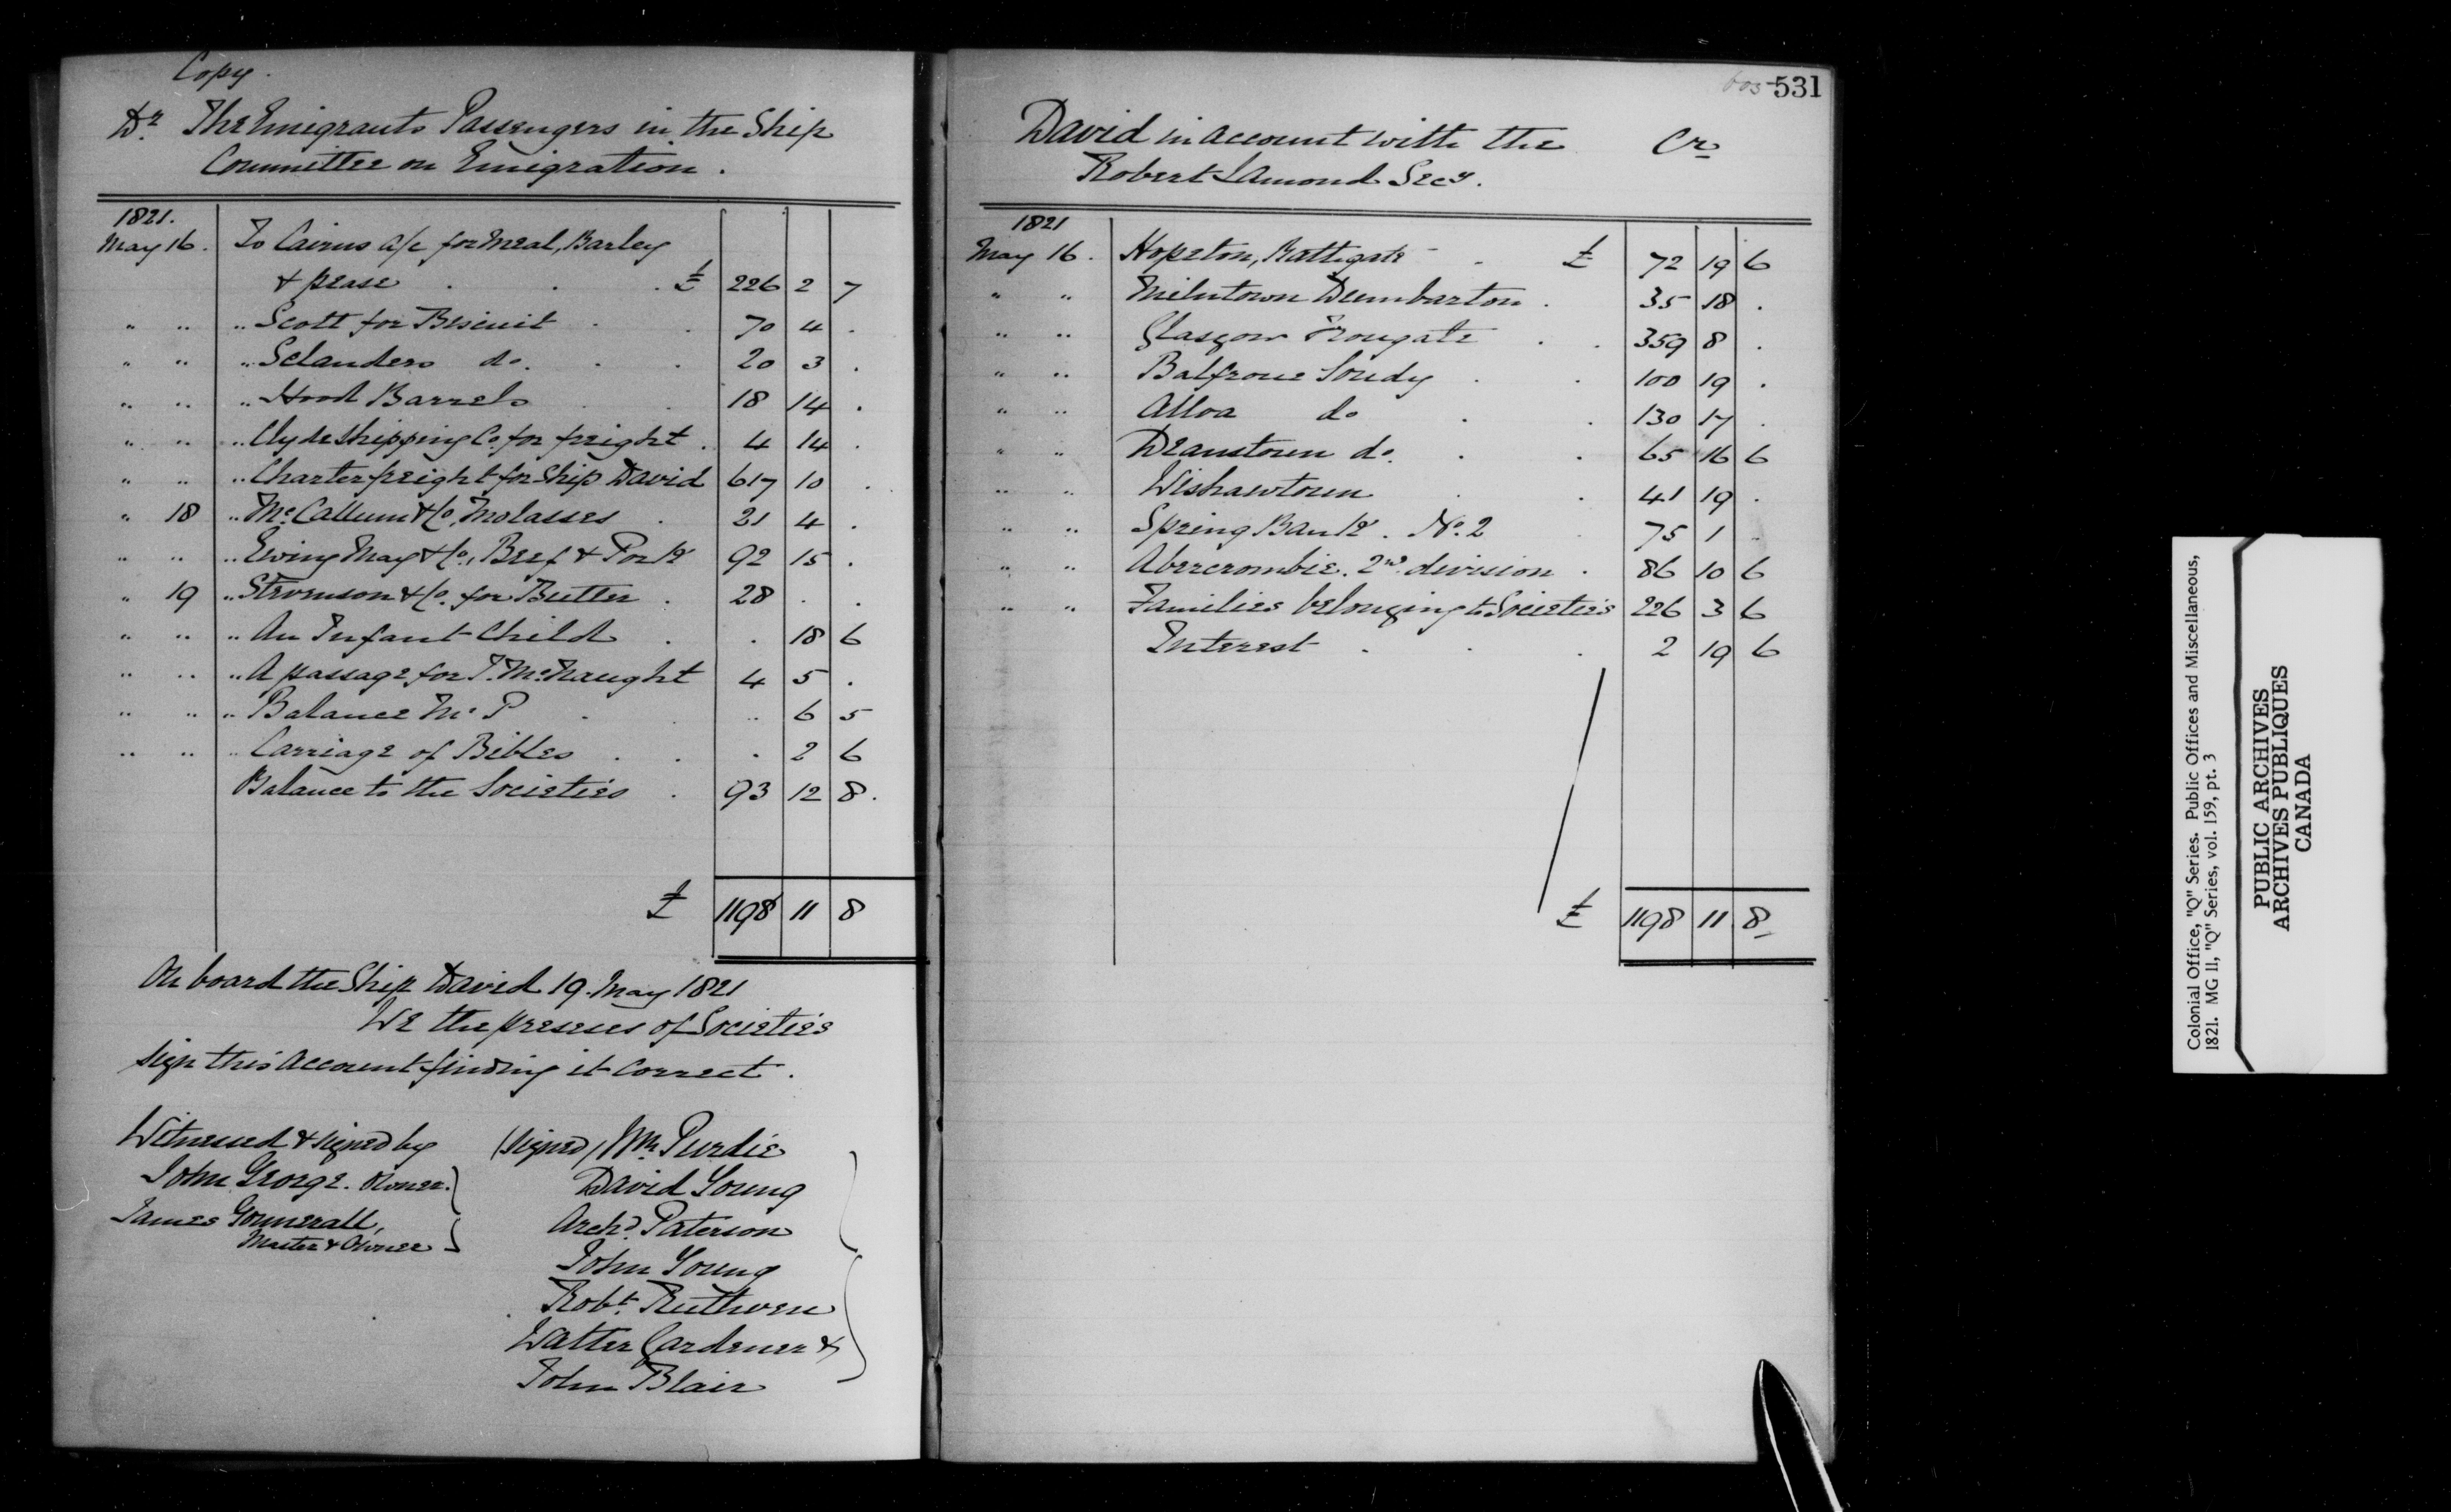 Copy.
Dr. The Emigrants Passengers in the Ship
Committee on Emigration.
1821.
May 16. To Cairns a/c for Meal, Barley
& pease . . . £ 226 2 7
" " " Scott for Biscuit . . 70 4 .
" " " Selanders do. . . 20 3 .
" " " Hood Barrels . . 18 14 .
" " " Clyde Shipping Co. for freight . 4 14 .
" " " Charter freight for Ship David 617 10 .
" 18 " McCallum & Co, Molasses . 21 4 .
" " " Ewing May & Co., Beef & Pork 92 15 .
" 19 " Stevenson & Co. for Butter . 28 . .
" " " An Infant Child . . 18 6
" " " A passage for P. McNaught 4 5 .
" " " Balance Mr P . . " 6 5
" " " Carriage of Bibles . . . 2 6
Balance to the Societies . 93 12 8.
£ 1198 11 8
On board the Ship David 19. May 1821
We the preses of Societies
sign this Account finding it correct.
Witnessed & signed by (signed) Wm Purdie
John George. Owner. David Young
James Gunnerall, Archd. Paterson
Master & Owner
John Young
Robt. Ruthven
Walter Gardener &
John Blair
531
David in account with the Cr
Robert Lamond Secy.
1821
May 16. Hopeton, Bathgate . £ 72 19 6
" " Milntown Dumbarton . 35 18 .
" " Glasgow Trongate . . 359 8 .
" " Balfrone Soudy . . 100 19 .
" " Alloa do . . 130 17 .
" " Deanstoun do. . . 65 16 6
" " Wishawtoun . . 41 19 .
" " Spring Bank. No. 2 75 1 "
" " Abercrombie. 2nd. division . 86 10 6
" " Families belonging to Societies 226 3 6
Interest . . . 2 19 6
£ 1198 11 8
Colonial Office, "Q" Series. Public Offices and Miscellaneous,
1821. MG 11, "Q" Series, vol. 159, pt. 3
PUBLIC ARCHIVES
ARCHIVES PUBLIQUES
CANADA